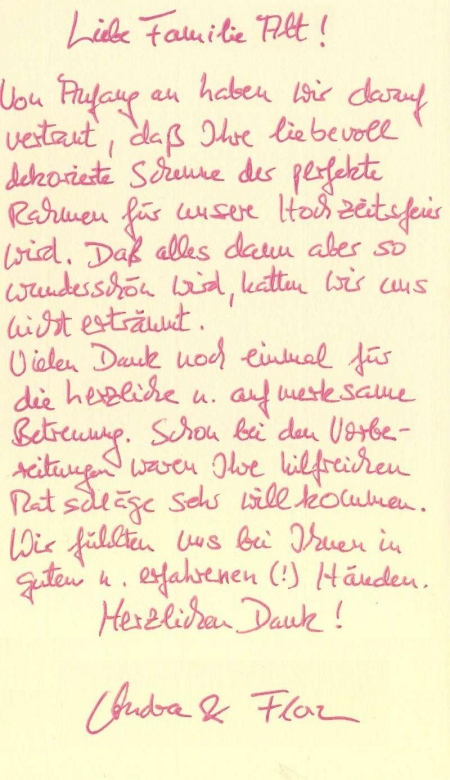 Liebe Familie Alt!
Von Anfang an haben wir darauf
vertraut, daß Ihre liebevoll
dekorierte Scheune der perfekte
Rahmen für unsere Hochzeitsfeier
wird. Daß alles dann aber so
wunderschön wird, hätten wir uns
nicht erträumt.
Vielen Dank noch einmal für
die herzliche u. aufmerksame
Betreuung. Schon bei den Vorbe-
reitungen waren Ihre hilfreichen
Ratschläge sehr willkommen.
Wir fühlten uns bei Ihnen in
guten u. erfahrenen (!) Händen.
Herzlichen Dank!
Andrea &